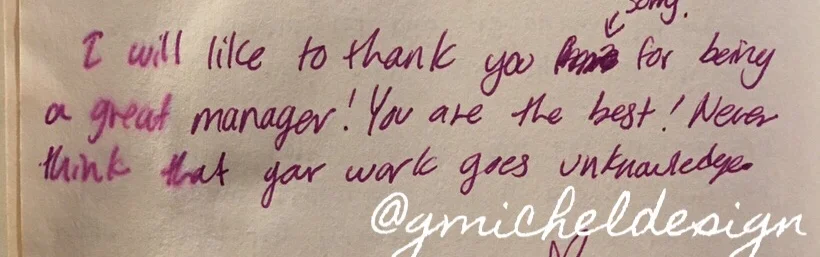 sorry.
I will like to thank you for being
a great manager! You are the best! Never
think that your work goes unknowledge.
@gmicheldesign